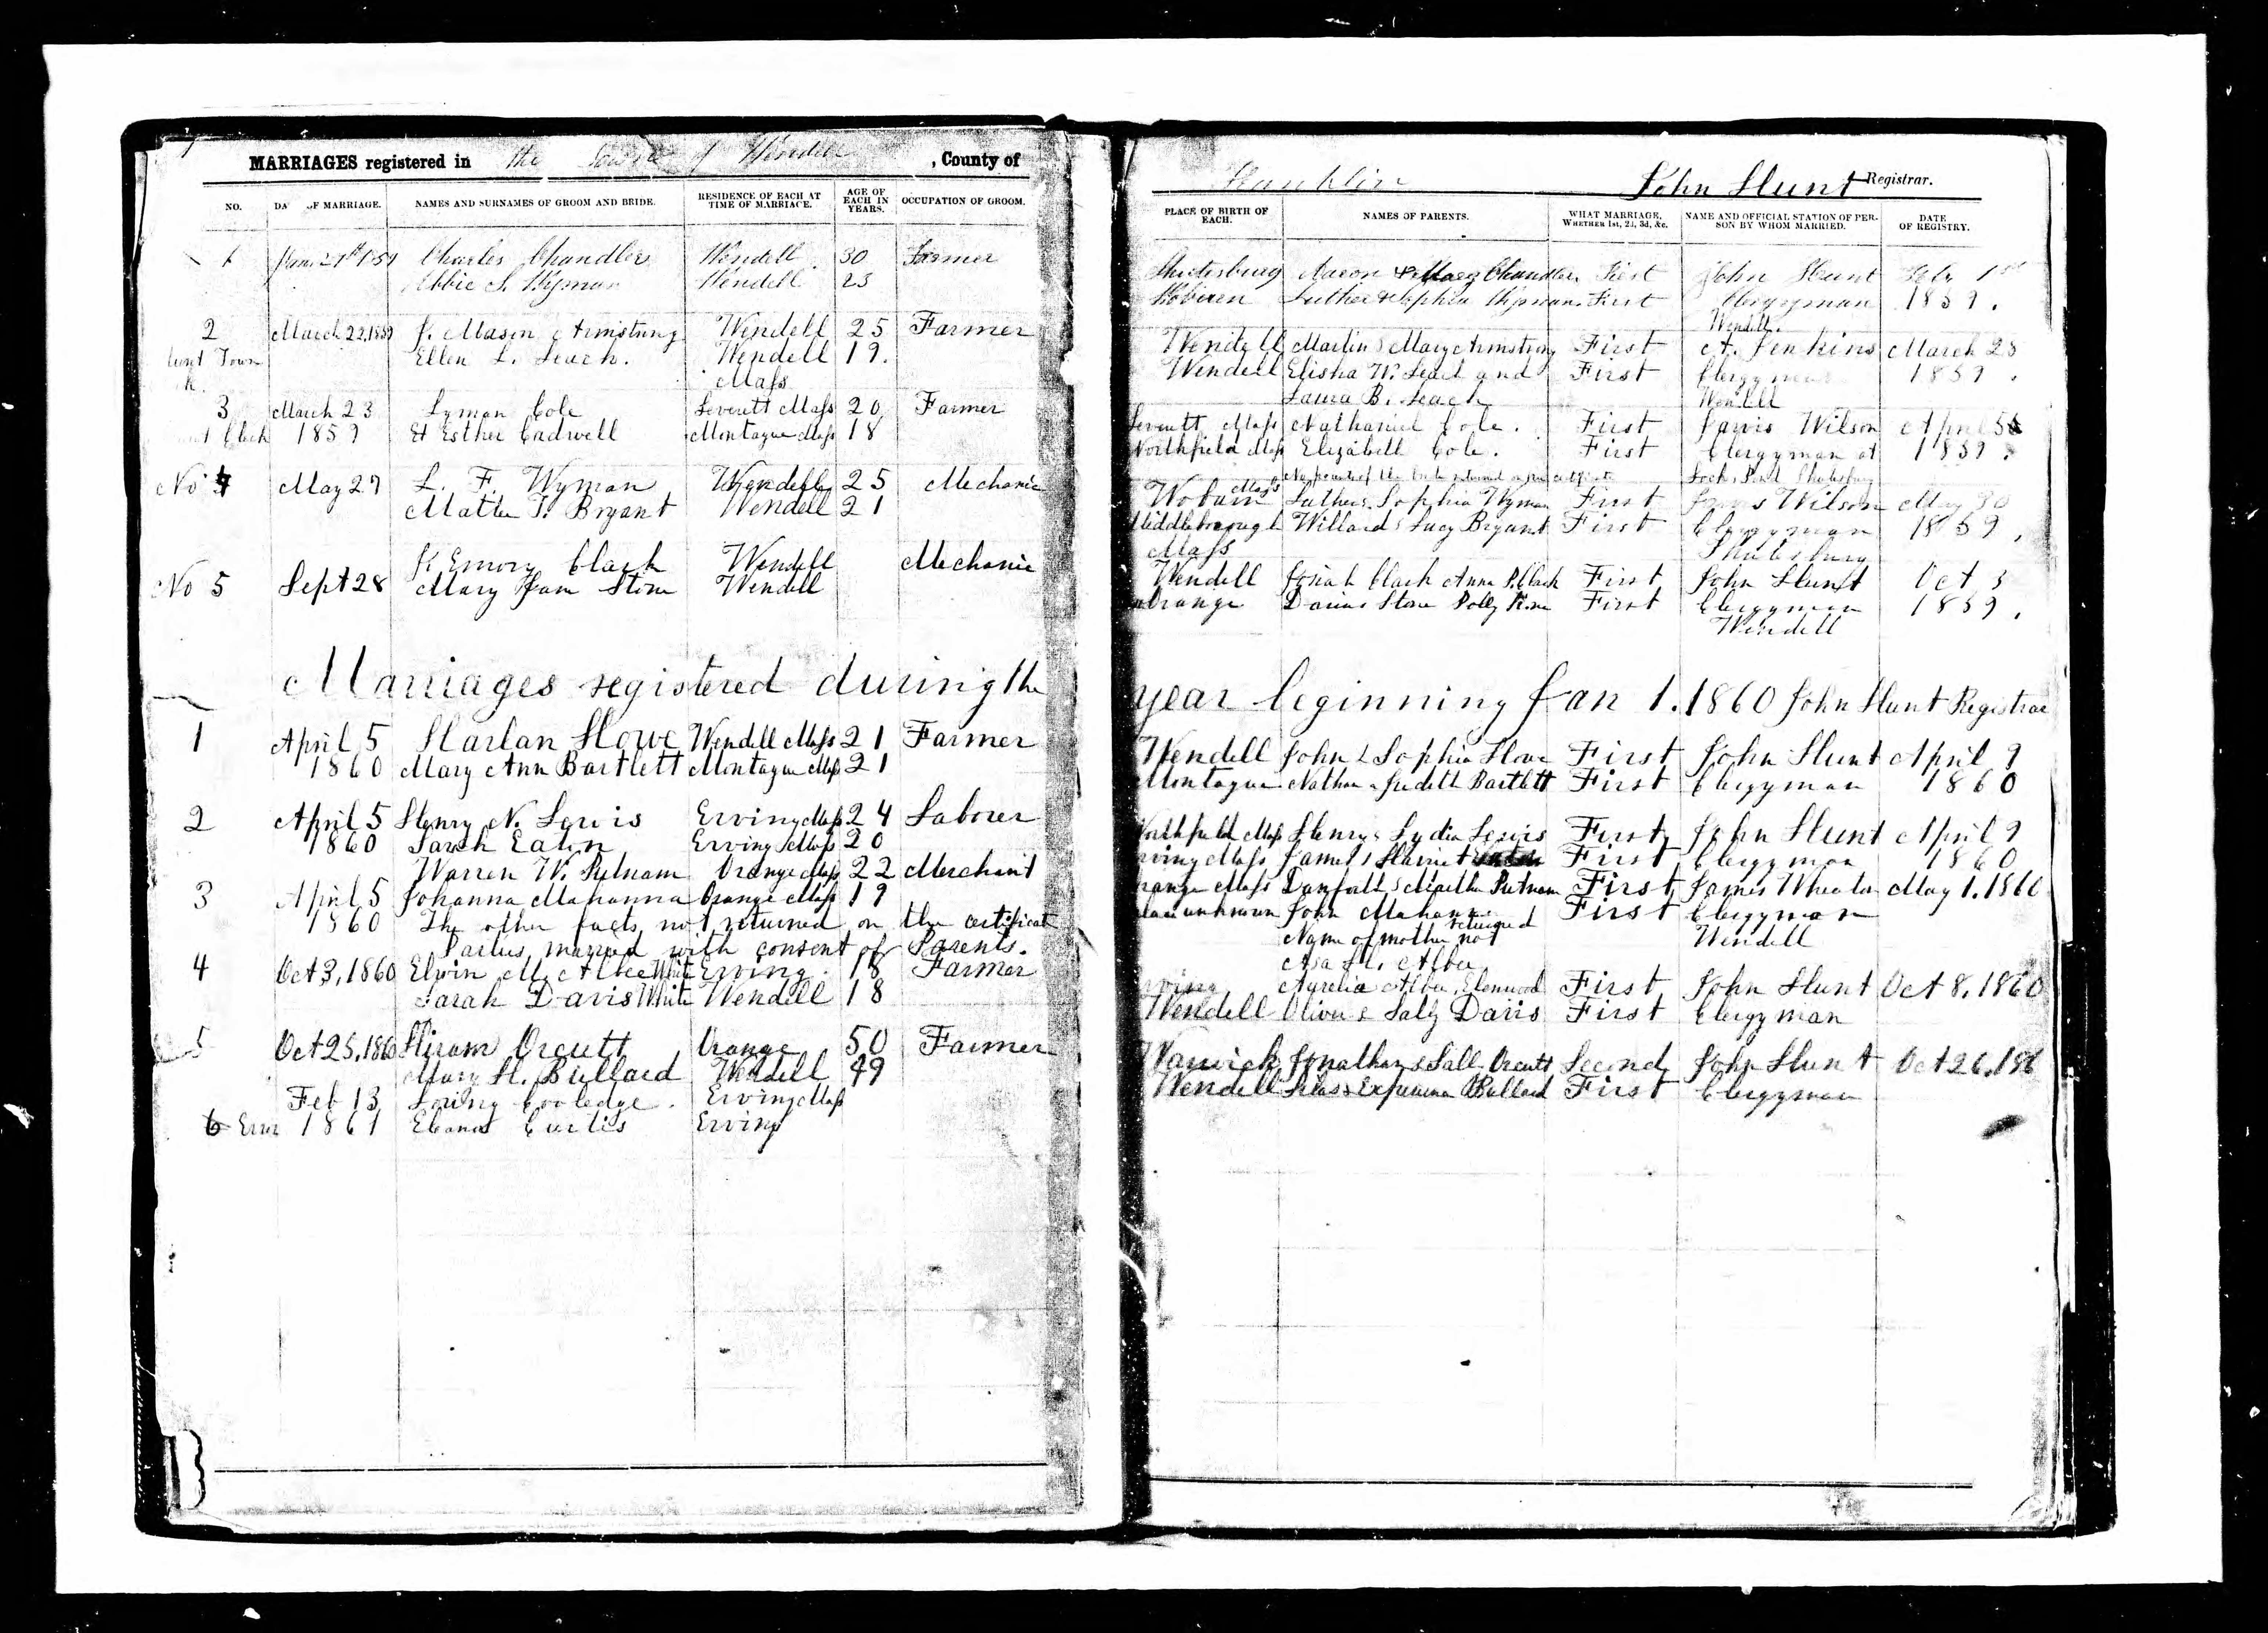 MARRIAGES registered in the Town of Wendell, County of
NO. DA OF MARRIAGE. NAMES AND SURNAMES OF GROOM AND BRIDE. RESIDENCE OF EACH AT TIME OF MARRIAGE. AGE OF EACH IN YEARS. OCCUPATION OF GROOM.
1 Charles Chandler Wendell 30 Farmer
Abbie S. Wyman Wendell 23
2 March 22, 1859 J. Mason Armstrong Wendell 25 Farmer
Town Ellen L. Leach. Wendell 19.
Mass
3 March 23 Lyman Cole Leverett Mass 20 Farmer
1859 Esther Cadwell Montague Mass 18
No 4 May 29 L. F. Wyman Wendell 25 Mechanic
Mattie T. Bryant Wendell 21
K Emory Clark Wendell Mechanic
No 5 Sept 28 Mary Jane Stone Wendell
Marriages registered during the
1 April 5 Harlan Howe Wendell Mass 21 Farmer
1860 Mary Ann Bartlett Montague Mass 21
2 April 5 Henry N. Lewis Erving Mass 24 Laborer
1860 Sarah Eaton Erving Mass 20
Warren W. Putnam Orange Mass 22 Merchant
3 April 5 Johanna Mahanna Orange Mass 19
1860 The other facts not returned on the certificate
Parties married with consent of Parents.
4 Oct 3, 1860 Elvin M. Albee White Erving 18 Farmer
Sarah Davis White Wendell 18
5 Oct 25, 1860 Hiram Orcutt Orange 50 Farmer
Mary H. Bullard Wendell 49
Feb 13 Loring Cooledge. Erving Mass
6 Error 1861 Curtis Erving
Franklin John Hunt Registrar.
PLACE OF BIRTH OF EACH. NAMES OF PARENTS. WHAT MARRIAGE, WHETHER 1st, 2d, 3d, &c. NAME AND OFFICIAL STATION OF PERSON BY WHOM MARRIED. DATE OF REGISTRY.
Shutesbury Aaron & Mary Chandler First John Hunt Feb 1st
Woburn Luther & Sophia Wyman. First Clergyman 1859.
Wendell.
Wendell Martin & Mary Armstrong First A. Jenkins March 28
Wendell Elisha W. Leach and First Clergyman 1859.
Laura B. Leach Wendell
Leverett Mass Nathaniel Cole. First Jarvis Wilson April 5
Northfield Mass Elizabeth Cole. First Clergyman at 1859.
Locks Pond Shutesbury
Woburn Mass Luther & Sophia Wyman First Wilson May 30
Middleborough Willard & Lucy Bryant First Clergyman 1859,
Mass Shutesbury
Wendell Josiah Clark Anna P. Clark First John Hunt Oct 3
Orange Darius Stone Polly Stone First Clergyman 1859,
Wendell
year beginning Jan 1. 1860 John Hunt Registrar
Wendell John & Sophia Howe First John Hunt April 9
Montague Nathan & Judith Bartlett First Clergyman 1860
Northfield Mass Henry & Lydia Lewis First John Hunt April 9
Erving Mass James & Harriet Eaton First Clergyman 1860
Orange Mass Danforth & Putnam First James Wheaton May 1. 1860
Place unknown John Mahanna First Clergyman
Name of mother not returned Wendell
Asa H. Albee
Erving Aurelia Albee First John Hunt Oct 8, 1860
Wendell Oliver & Sally Davis First Clergyman
Warwick Jonathan & Sall Orcutt Second John Hunt Oct 26, 186
Wendell Silas & Bullard First Clergyman